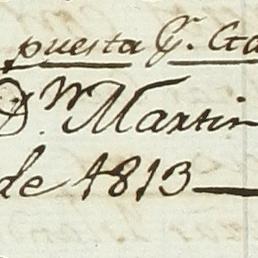 puesta Gr. Ga
Dn. Martin
de 1813